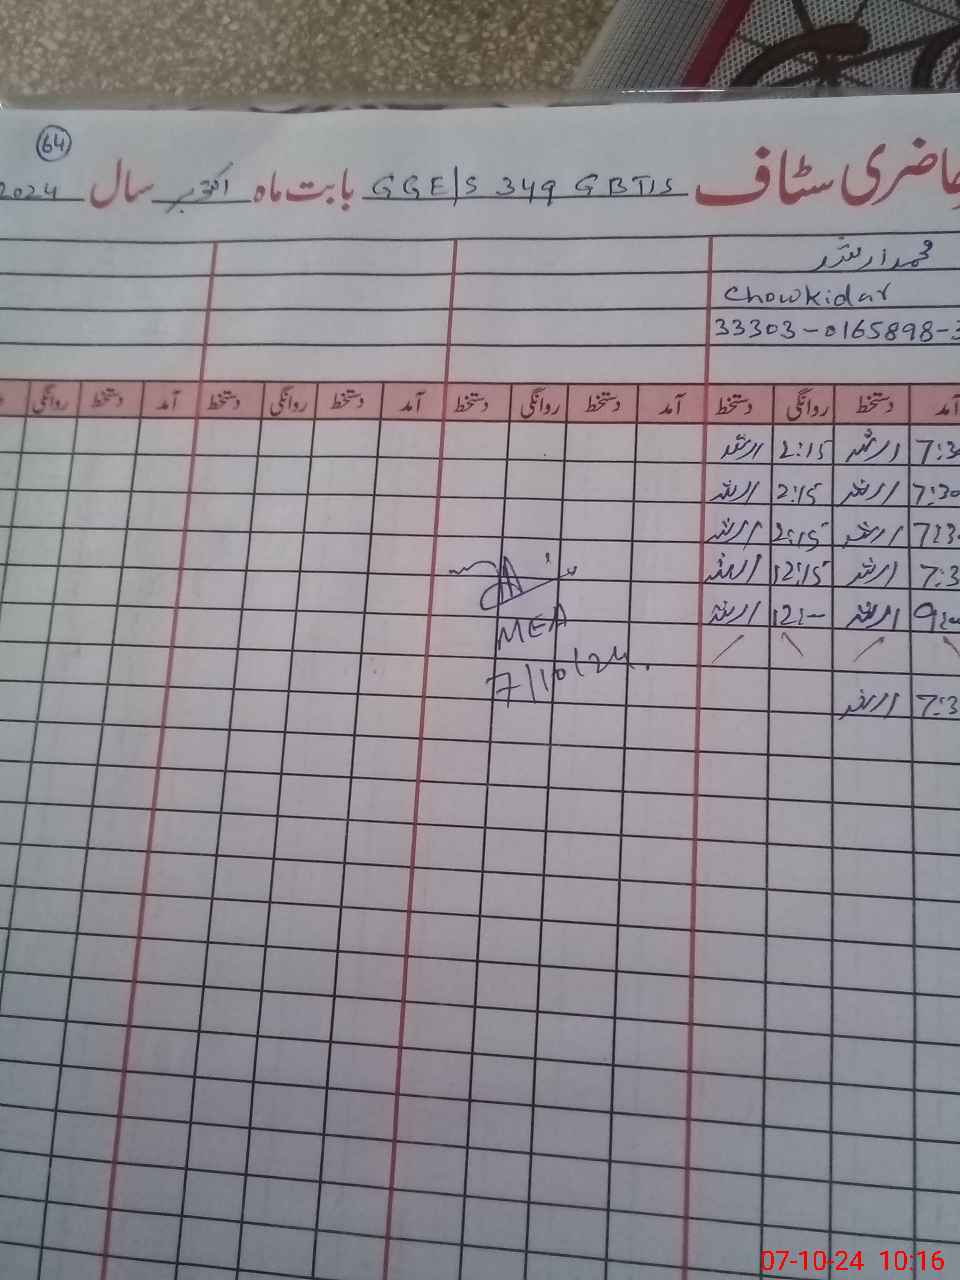 64
حاضری سٹاف GGE/S 349 GBTIS بابت ماہ اکتوبر سال 2024
محمد ارشد
Chowkidar
33303-0165898-3
آمد دستخط روانگی دستخط آمد دستخط روانگی دستخط آمد دستخط روانگی دستخط آمد دستخط روانگی
7:30 ارشد 2:15 ارشد
7:30 ارشد 2:15 ارشد
7:30 ارشد 2:15 ارشد
7:3 ارشد 12:15 ارشد
9:00 ارشد 12:- ارشد
7:3 ارشد
MEA
7/10/24.
07-10-24 10:16